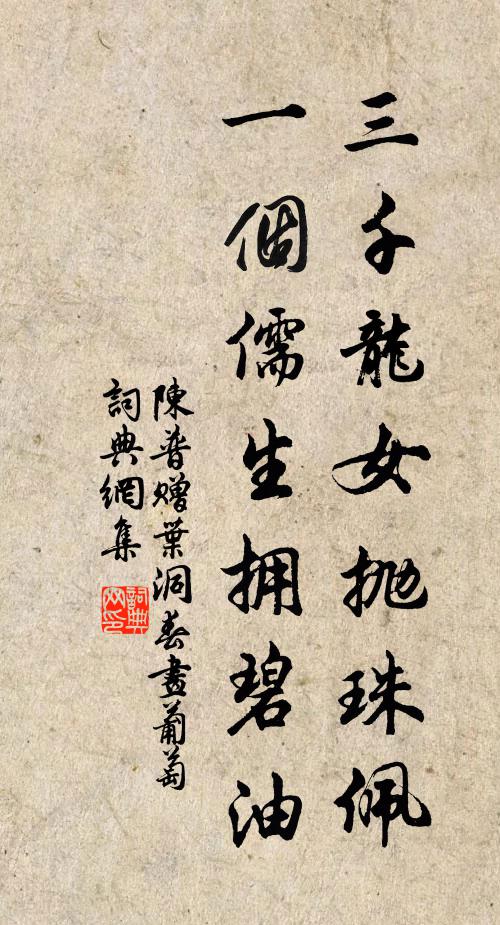 三千龍女拋珠佩
一個儒生拥碧油
陳普贈葉洞春畫葡萄
詞典網集
詞典
网印